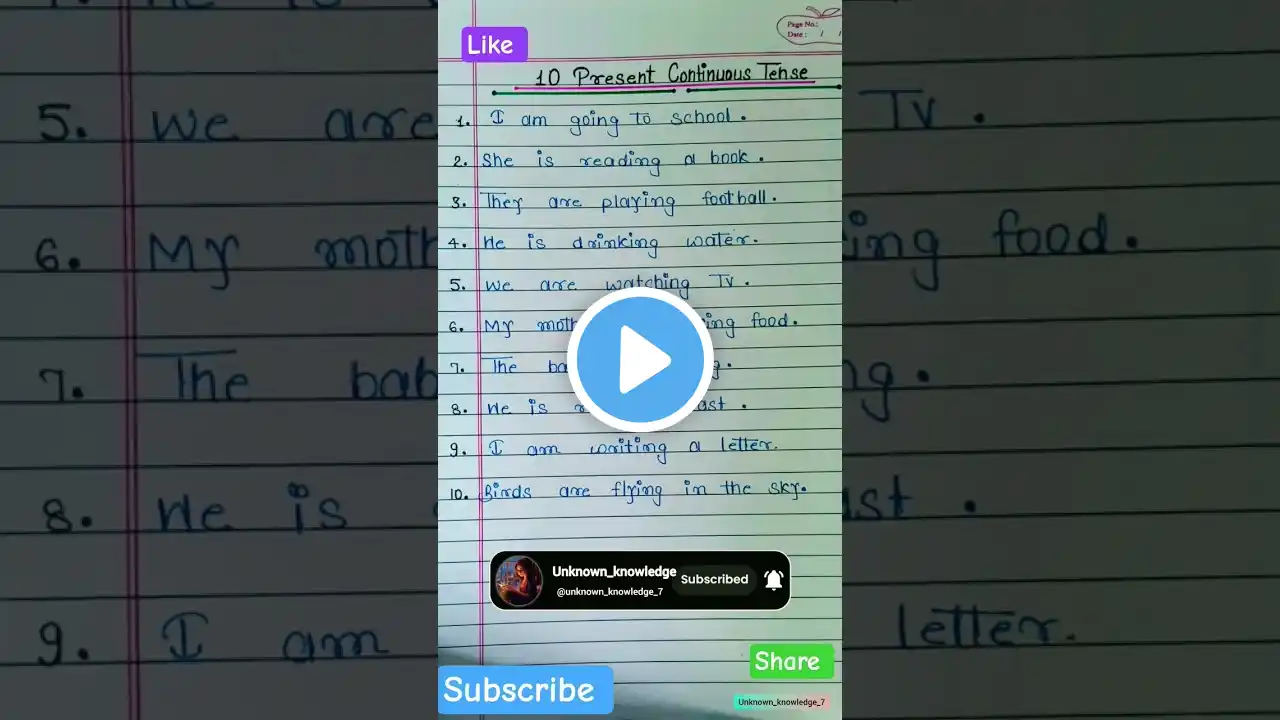 Page No.:
Date: / /
Like
10 Present Continuous Tense
1. I am going to school.
2. She is reading a book.
3. They are playing football.
4. He is drinking water.
5. We are watching Tv.
6. My moth ing food.
7. The ba g.
8. He is r ast.
9. I am writing a letter.
10. Birds are flying in the sky.
Unknown_knowledge
@unknown_knowledge_7
Subscribed
Share
Subscribe
Unknown_knowledge_7
5. We are Tv.
6. My moth ing food.
7. The bab ng.
8. He is ast.
9. I am letter.